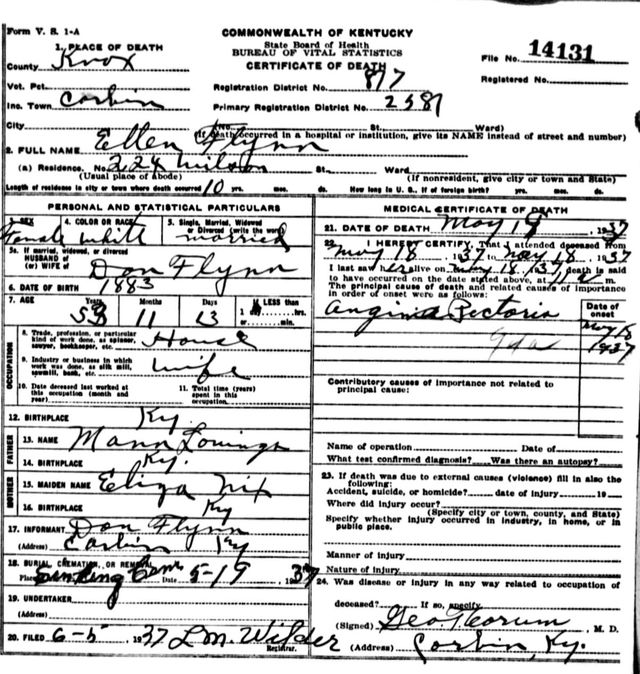 Form V. S. 1-A
COMMONWEALTH OF KENTUCKY
State Board of Health
BUREAU OF VITAL STATISTICS
CERTIFICATE OF DEATH
File No. 14131
Registered No.
1. PLACE OF DEATH
County Knox
Vot. Pct.
Inc. Town Corbin
City
Registration District No. 817
Primary Registration District No. 2381
(No. St. Ward)
(If death occurred in a hospital or institution, give its NAME instead of street and number)
2. FULL NAME Ellen Flynn
(a) Residence. No. 224 Wilson St. Ward
(Usual place of abode) (If nonresident, give city or town and State)
Length of residence in city or town where death occurred 10 yrs. mos. ds. How long in U. S., if of foreign birth? yrs. mos. ds.
PERSONAL AND STATISTICAL PARTICULARS
3. SEX Female
4. COLOR OR RACE white
5. Single, Married, Widowed or Divorced (write the word) married
5a. If married, widowed, or divorced
HUSBAND of
(or) WIFE of Don Flynn
6. DATE OF BIRTH 1883
7. AGE Years 53 Months 11 Days 13 If LESS than
1 day hrs.
or min.
OCCUPATION
8. Trade, profession, or particular
kind of work done, as spinner,
sawyer, bookkeeper, etc. House
9. Industry or business in which
work was done, as silk mill,
sawmill, bank, etc. wife
10. Date deceased last worked at
this occupation (month and
year)
11. Total time (years)
spent in this
occupation.
12. BIRTHPLACE Ky.
FATHER
13. NAME Mann
14. BIRTHPLACE Ky.
MOTHER
15. MAIDEN NAME Eliza Nix
16. BIRTHPLACE Ky
17. INFORMANT Don Flynn
(Address) Corbin Ky
18. BURIAL, CREMATION, OR REMOVAL
Place Cem Date 5-19 1937
19. UNDERTAKER
(Address)
20. FILED 6-5 1937 L.M. Wilder
Registrar.
MEDICAL CERTIFICATE OF DEATH
21. DATE OF DEATH May 18, 1937
22. I HEREBY CERTIFY, That I attended deceased from
May 18 1937 to May 18, 1937
I last saw her alive on May 18 1937 death is said
to have occurred on the date stated above, at m.
The principal cause of death and related causes of importance
in order of onset were as follows:
Date of
onset
Angina Pectoris May 18
1937
Contributory causes of importance not related to
principal cause:
Name of operation Date of
What test confirmed diagnosis? Was there an autopsy?
23. If death was due to external causes (violence) fill in also the
following:
Accident, suicide, or homicide? date of injury 19
Where did injury occur?
(Specify city or town, county, and State)
Specify whether injury occurred in industry, in home, or in
public place.
Manner of injury
Nature of injury
24. Was disease or injury in any way related to occupation of
deceased? If so, specify
(Signed) M. D.
(Address) Corbin, Ky.